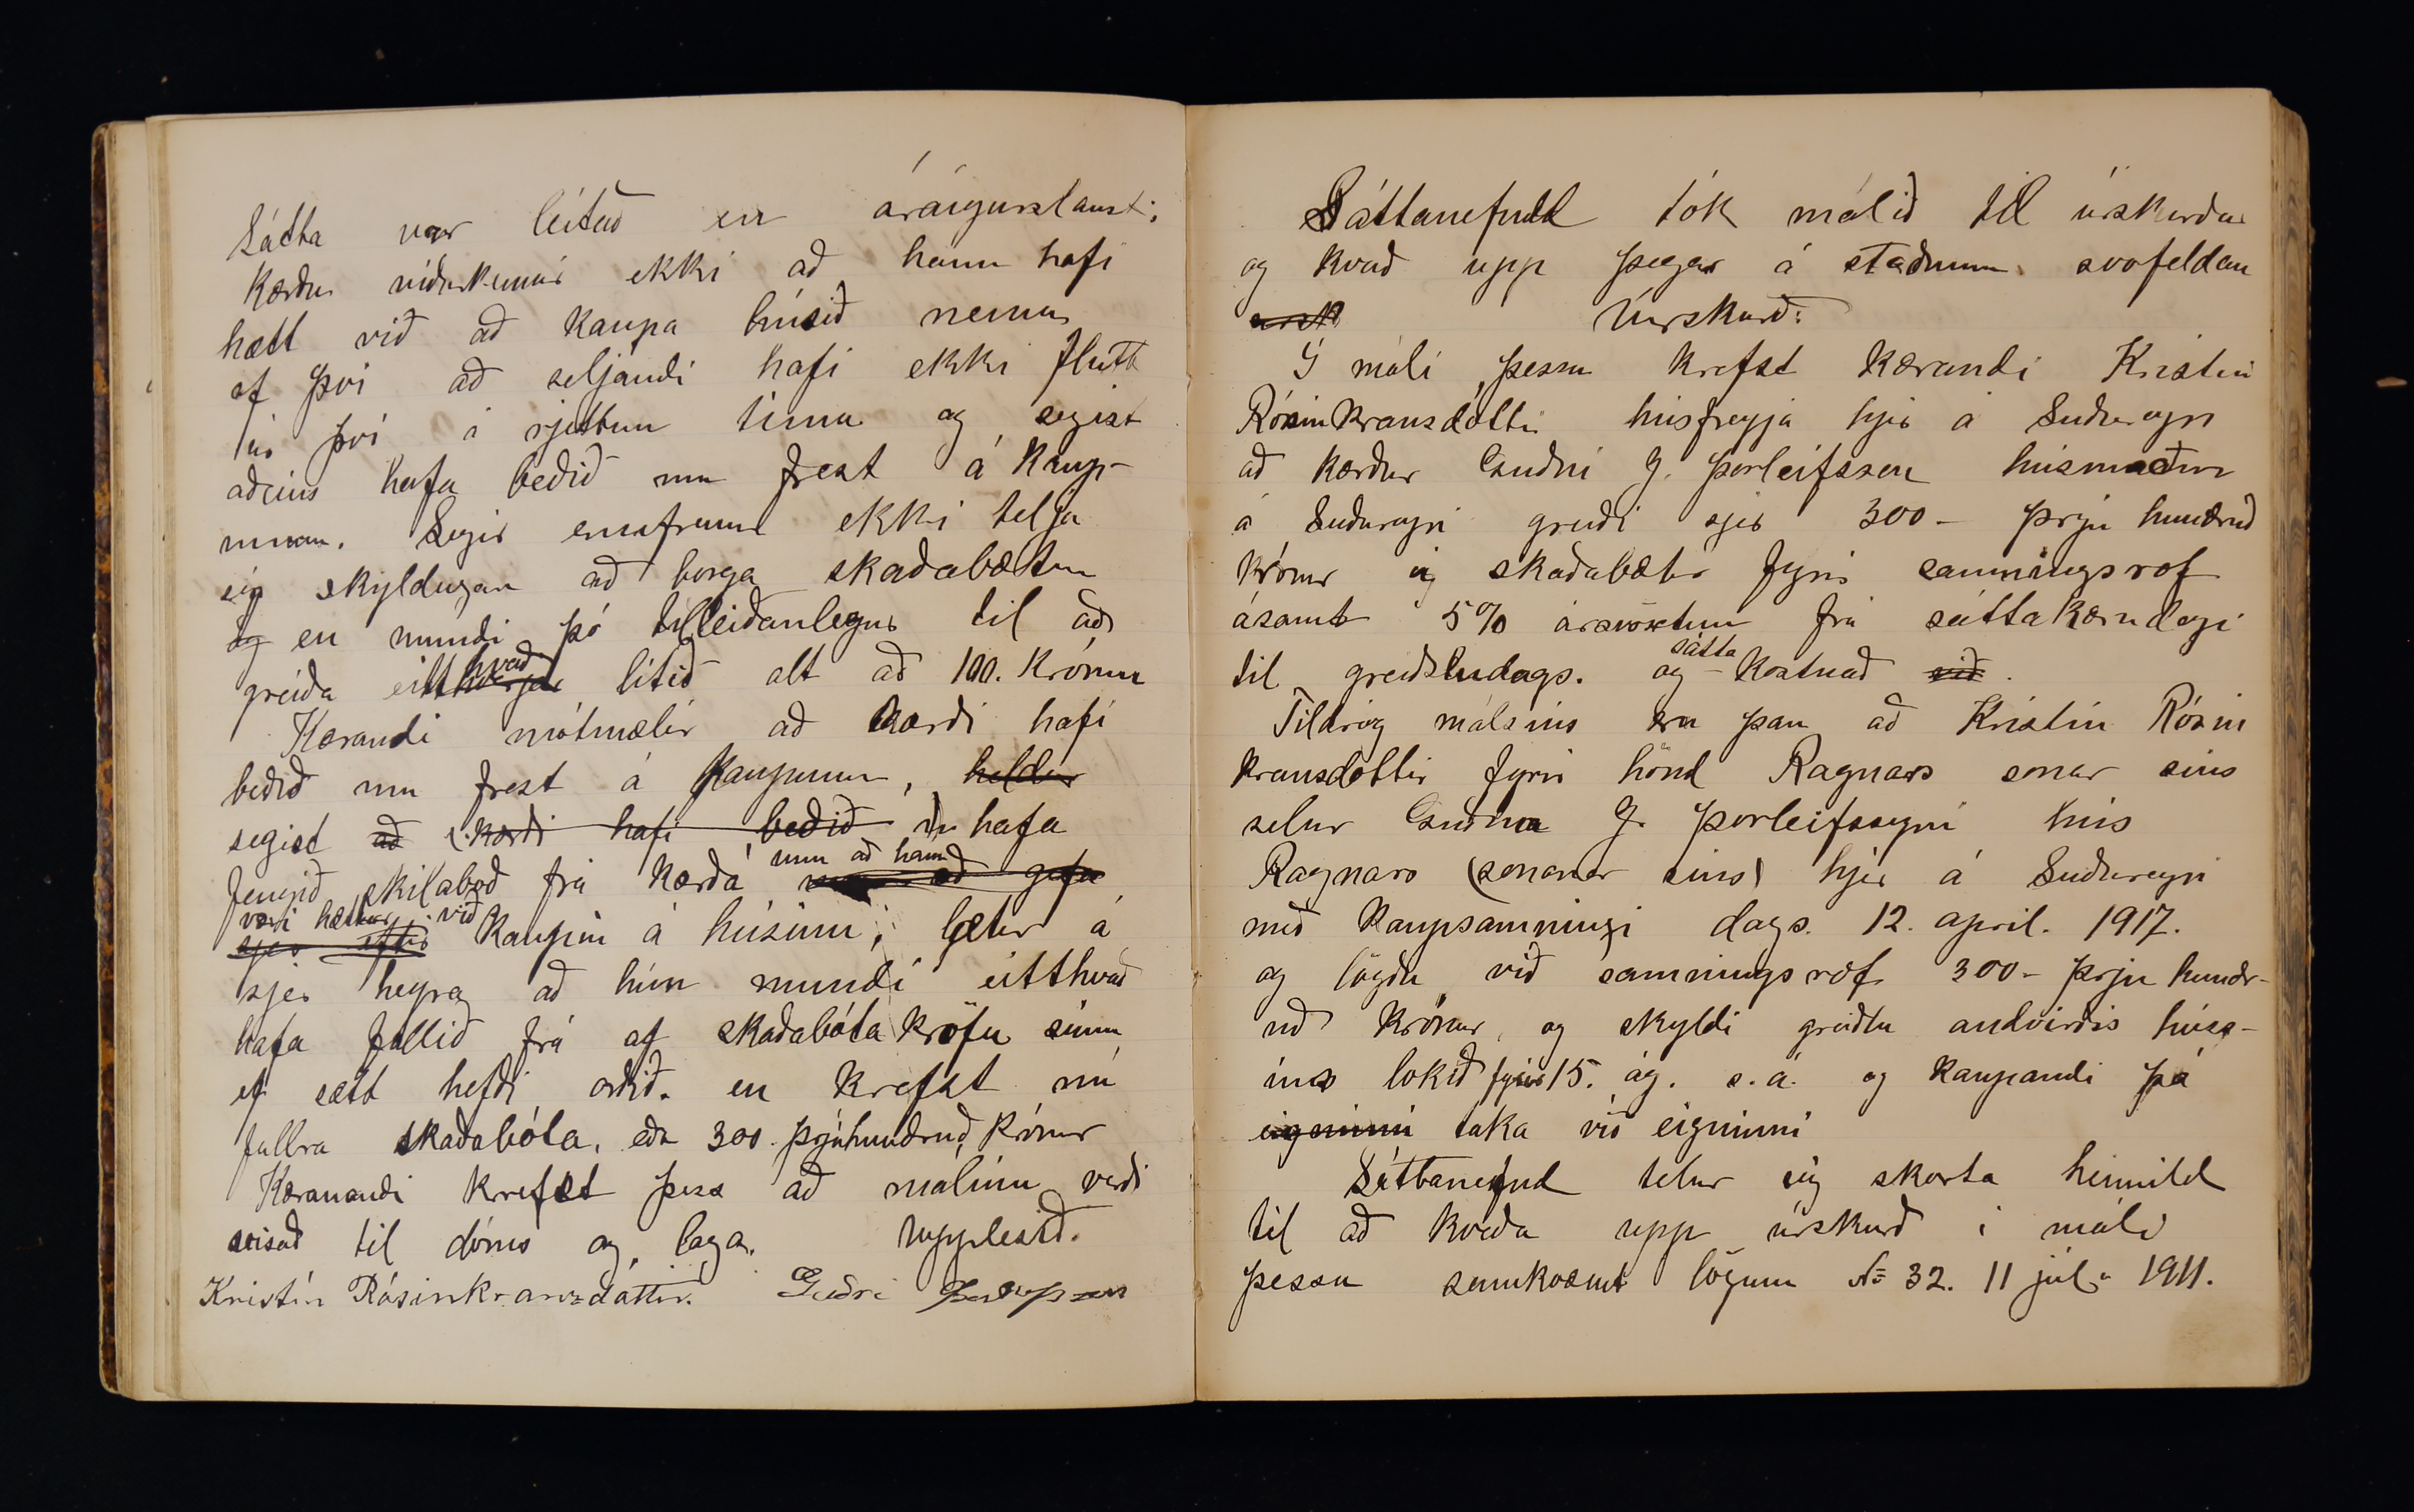 Sátta var leitað en árangurslaust;
Kærður viðurkennir ekki að hann hafi
hætt við að kaupa húsið nema
af því að seljandi hafi ekki flutt
úr því í rjettum tíma og segist
aðeins hafa beðið um frest á kaup-
unum. Segir ennfremur ekki telja
sig skyldugan að borga skaðabætur
og en mundi þó tilleiðanlegur til að
greiða eitthvað lítið alt að 100. Krónur
Kærandi mótmælir að kærði hafi
beðið um frest á kaupunum, heldur
segist að kærði hafi beðið hafa
fengið skilaboð frá kærða um að hann
væri hættur við kaupin á húsinu; lætur á
sjer heyra að hún mundi eitthvað
hafa fallið frá af skaðabóta kröfu sinni
ef sætt hefði orðið. en krefst nú
fullra skaðabóta, eða 300. þrjúhundruð Krónur
Kæranandi krefst þess að málinu verði
vísað til dóms og laga. Upplesið.
Kristín Rósinkranzdóttir. Guðni Þorleifsson
Sáttanefnd tók málið til úrskurðar
og kvað upp þegar á staðnum svofeldan
ursk Úrskurð:
Í máli þessu krefst kærandi Kristín
Rósinkransdóttir húsfreyja hjer á Suðureyri
að kærður Guðni J. Þorleifsson húsmaður
á Suðureyri greiði sjer 300 - þrjú hundruð
krónur í skaðabætur fyrir samningsrof
ásamt 5% ársvöxtum frá sáttakærudegi
til greiðsludags. og sátta-kostnað við.
Tildrög málsins eru þau að Kristín Rósin
kransdóttir fyrir hönd Ragnars sonar síns
selur Guðna J. Þorleifssyni hús
Ragnars (sonar síns) hjer á Suðureyri
með kaupsamningi dags. 12. apríl. 1917.
og lögðu við samningsrof 300 - þrjú hundr-
uð krónur, og skyldi greiðslu andvirðis húss-
ins lokið fyrir 15. ág. s.á. og kaupandi þá
eigninni taka við eigninni
Sáttanefnd telur sig skorta heimild
til að kveða upp úrskurð í máli
þessu samkvæmt lögum № 32. 11 júlí 1911.